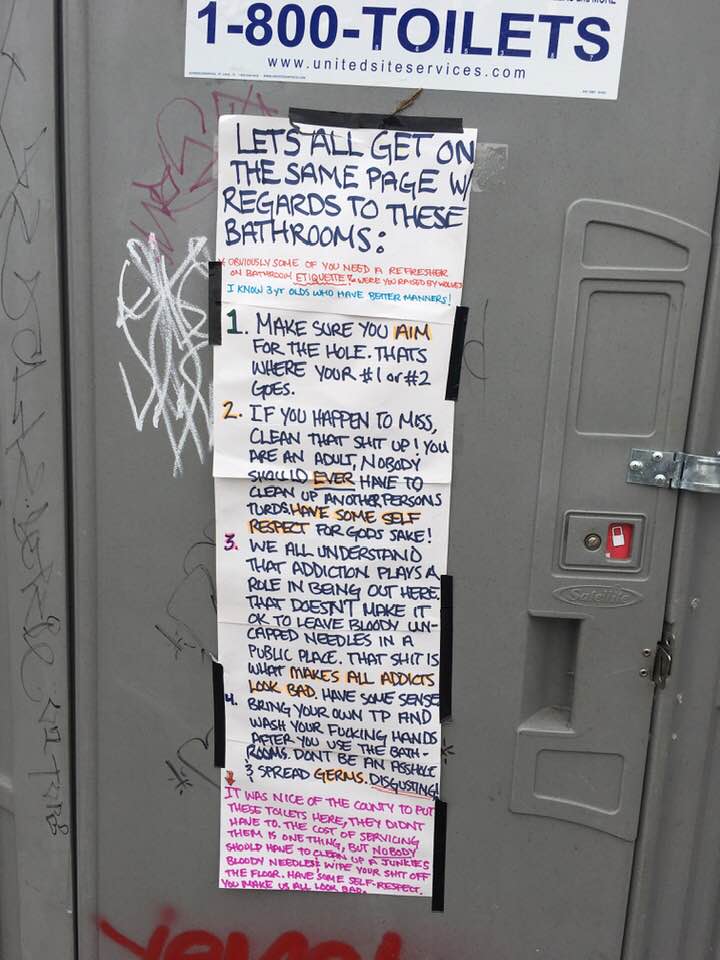 1-800-TOILETS
www.unitedsiteservices.com
LETS ALL GET ON
THE SAME PAGE W/
REGARDS TO THESE
BATHROOMS:
* OBVIOUSLY SOME OF YOU NEED A REFRESHER
ON BATHROOM ETIQUETTE WERE YOU RAISED BY WOLVES
I KNOW 3 yr OLDS WHO HAVE BETTER MANNERS!
1. MAKE SURE YOU AIM
FOR THE HOLE. THATS
WHERE YOUR #1 or #2
GOES.
2. IF YOU HAPPEN TO MISS,
CLEAN THAT SHIT UP! YOU
ARE AN ADULT, NOBODY
SHOULD EVER HAVE TO
CLEAN UP ANOTHER PERSONS
TURDS. HAVE SOME SELF
RESPECT FOR GODS SAKE!
3. WE ALL UNDERSTAND
THAT ADDICTION PLAYS A
ROLE IN BEING OUT HERE.
THAT DOESN'T MAKE IT
OK TO LEAVE BLOODY UN-
CAPPED NEEDLES IN A
PUBLIC PLACE. THAT SHIT IS
WHAT MAKES ALL ADDICTS
LOOK BAD. HAVE SOME SENSE
4. BRING YOUR OWN TP AND
WASH YOUR FUCKING HANDS
AFTER YOU USE THE BATH-
ROOMS. DONT BE AN ASSHOLE
& SPREAD GERMS. DISGUSTING!
IT WAS NICE OF THE COUNTY TO PUT
THESE TOILETS HERE, THEY DIDNT
HAVE TO. THE COST OF SERVICING
THEM IS ONE THING, BUT NOBODY
SHOULD HAVE TO CLEAN UP A JUNKIES
BLOODY NEEDLES & WIPE YOUR SHIT OFF
THE FLOOR. HAVE SOME SELF-RESPECT.
YOU MAKE US ALL LOOK BAD.
Satellite